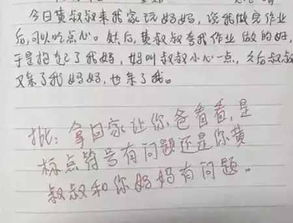 今日黄叔叔来我家访妈妈，说我做完作业
后，可以吃点心。然后，黄叔叔夸我作业做的好，
于是抱起了我妈，妈叫叔叔小心一点，之后叔叔
又亲了我妈妈，也亲了我。
批：拿回家让你爸看看，是
标点符号有问题还是你黄
叔叔和你妈妈有问题。